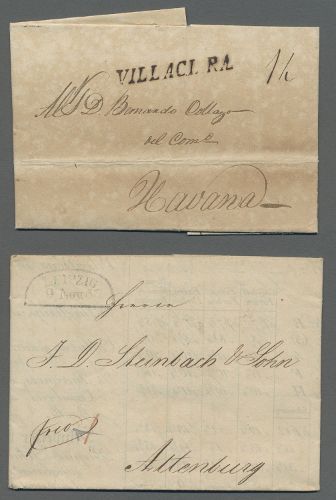 VILLACLRA
1½
D. Bernardo Collazo
del Comº
Havana
LEIPZIG
9 Nov
Herren
J. D. Steinbach & Sohn
frco
Altenburg